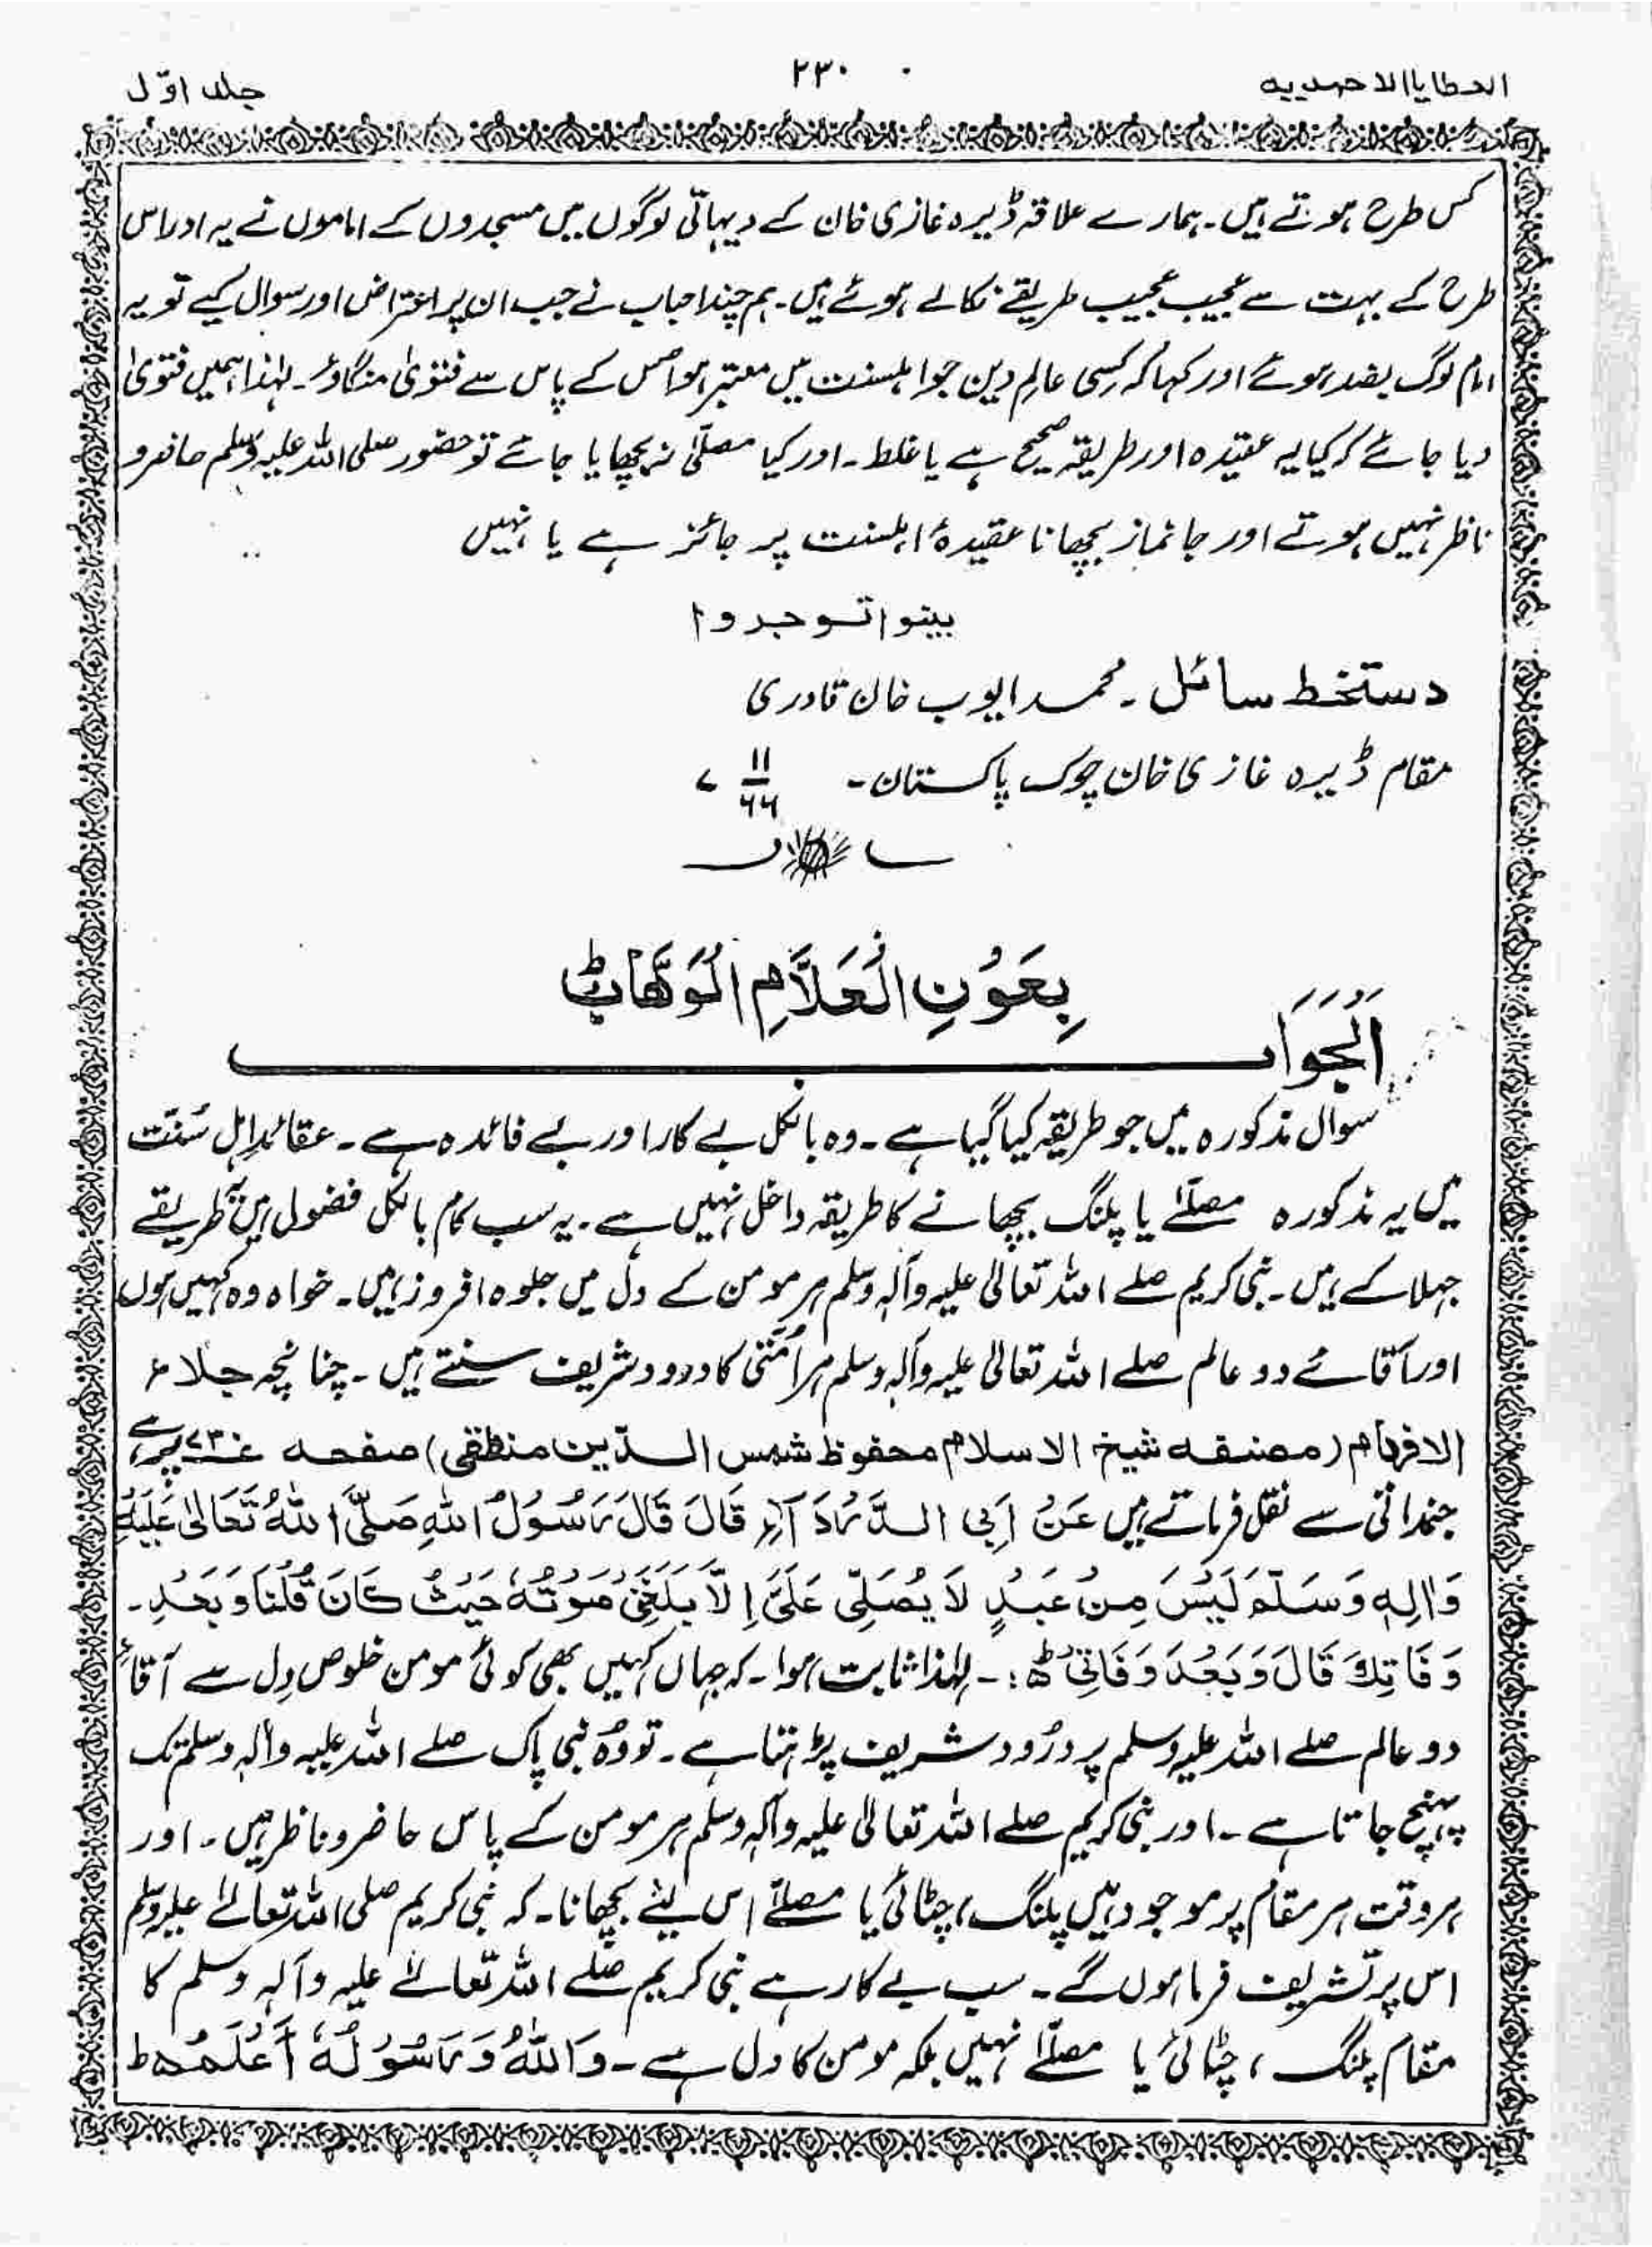 العطایا الاحمدیہ
۲۳۰
جلد اوّل
کس طرح ہوتے ہیں۔ ہمارے علاقہ ڈیرہ غازی خان کے دیہاتی لوگوں میں مسجدوں کے اماموں نے یہ اور اس
طرح کے بہت سے عجیب عجیب طریقے نکالے ہوئے ہیں۔ ہم چند احباب نے جب ان پر اعتراض اور سوال کیے تو یہ
امام لوگ بضد ہوئے اور کہا کہ کسی عالم دین جو اہلسنت میں معتبر ہو اس کے پاس سے فتویٰ منگاؤ۔ لہٰذا ہمیں فتویٰ
دیا جائے کہ کیا یہ عقیدہ اور طریقہ صحیح ہے یا غلط۔ اور کیا مصلّٰی نہ بچھایا جائے تو حضور صلی اللہ علیہ وسلم حاضر و
ناظر نہیں ہوتے اور جا نماز بچھانا عقیدۂ اہلسنت پر جائز ہے یا نہیں
بینوا توجروا
دستخط سائل۔ محمد ایوب خان قادری
مقام ڈیرہ غازی خان چوک پاکستان۔ ۱۱/۶۶ ء
بِعَوْنِ الْعَلَّامِ الْوَهَّابْ ط
اَلْجَوَاب
سوال مذکورہ میں جو طریقہ کیا گیا ہے۔ وہ بالکل بے کار اور بے فائدہ ہے۔ عقائدِ اہل سُنّت
میں یہ مذکورہ مصلّٰے یا پلنگ بچھانے کا طریقہ داخل نہیں ہے۔ یہ سب کام بالکل فضول ہیں یہ طریقے
جہلا کے ہیں۔ نبی کریم صلے اللہ تعالیٰ علیہ وآلہ وسلم ہر مومن کے دل میں جلوہ افروز ہیں۔ خواہ وہ کہیں ہوں
اور آقائے دو عالم صلے اللہ تعالیٰ علیہ وآلہ وسلم ہر اُمّتی کا درود شریف سنتے ہیں۔ چنانچہ جلاء
الافہام (مصنفہ شیخ الاسلام محفوظ شمس الدّین منطقی) صفحہ ۷۳ پر ہے
عَنْ اَبِی الدَّرْدَآءِ قَالَ قَالَ رَسُوْلُ اللہِ صَلَّی اللہُ تَعَالٰی عَلَیْہِ نقل فرماتے ہیں
وَاٰلِہٖ وَسَلَّمَ لَیْسَ مِنْ عَبْدٍ لَا یُصَلِّیْ عَلَیَّ اِلَّا بَلَغَنِیْ صَوْتُہٗ حَیْثُ کَانَ قُلْنَا وَبَعْدِ۔
وَفَاتِکَ قَالَ وَبَعْدَ وَفَاتِیْ ط؛۔ لہٰذا ثابت ہوا۔ کہ جہاں کہیں بھی کوئی مومن خلوص دِل سے آقائے
دو عالم صلے اللہ علیہ وسلم پر درُود شریف پڑہتا ہے۔ تو وُہ نبی پاک صلے اللہ علیہ واٰلہٖ وسلم تک
پہنچ جاتا ہے۔ اور نبی کریم صلے اللہ تعالیٰ علیہ وآلہٖ وسلم ہر مومن کے پاس حاضر و ناظر ہیں۔ اور
ہر وقت ہر مقام پر موجود ہیں پلنگ، چٹائی یا مصلّے اس لیئے بچھانا۔ کہ نبی کریم صلی اللہ تعالےٰ علیہ وسلم
اس پر تشریف فرما ہوں گے۔ سب بے کار ہے نبی کریم صلے اللہ تعالےٰ علیہ وآلہٖ وسلم کا
مقام پلنگ، چٹائی یا مصلّٰے نہیں بلکہ مومن کا دل ہے۔ وَاللہُ وَرَسُوْلُہٗ اَعْلَمُ ط